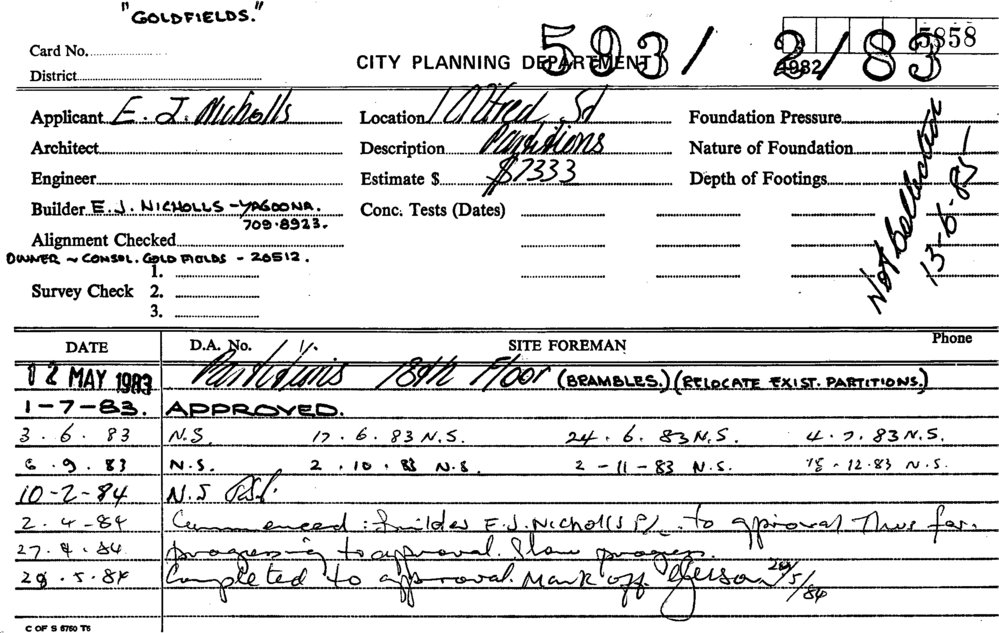 "GOLDFIELDS."
Card No.
5858
593/ 2/83
District
CITY PLANNING DEPARTMENT
1982
Applicant E. J. Nicholls
Location 1 Alfred St
Foundation Pressure
Architect
Description Partitions
Nature of Foundation
Engineer
Estimate $ $7333
Depth of Footings
Builder E.J. NICHOLLS - YAGOONA.
709.8923.
Conc. Tests (Dates)
Not
13-6-85
Alignment Checked
OWNER ~ CONSOL. GOLD FIELDS - 20512.
1.
Survey Check 2.
3.
DATE D.A. No. SITE FOREMAN Phone
12 MAY 1983 Partitions 18th Floor (BRAMBLES.) (RELOCATE EXIST. PARTITIONS.)
1-7-83. APPROVED.
3.6.83 N.S. 17.6.83 N.S. 24.6.83 N.S. 4.7.83 N.S.
6.9.83 N.S. 2.10.83 N.S. 2-11-83 N.S. 12.83 N.S.
10-2-84 N.S
2.4-84 Commenced: builder E.J. Nicholls P/L to approval Thus far.
27.4.84 progressing to approval. Slow progress.
28.5.84 Completed to approval. Mark off. 5/84
C OF S 6750 T5